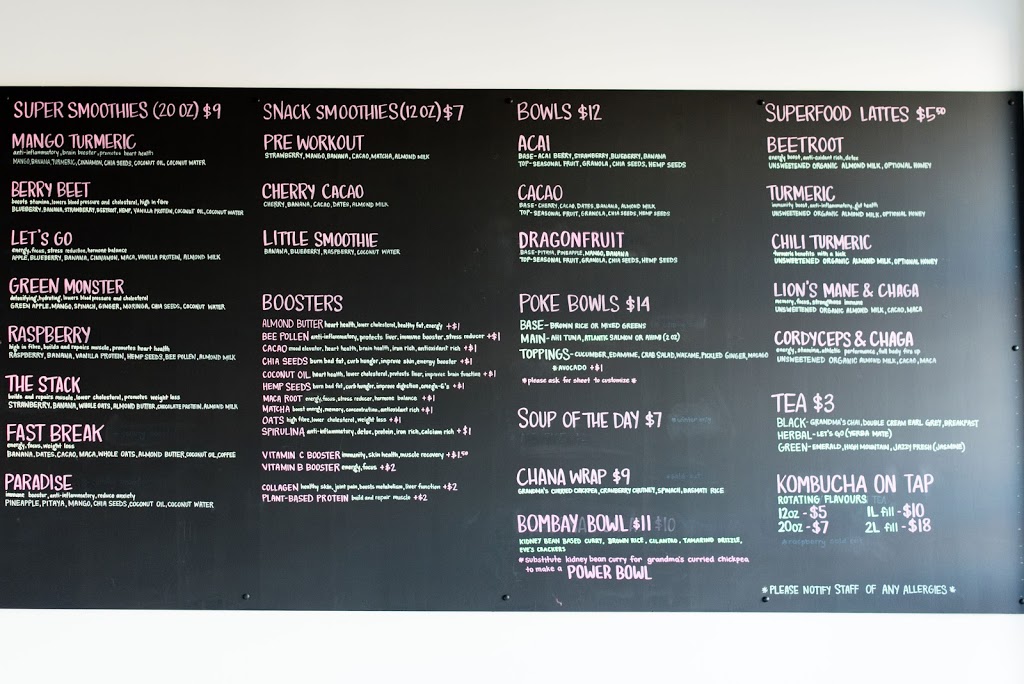 SUPER SMOOTHIES (20 OZ) $9
MANGO TURMERIC
anti-inflammatory, brain booster, promotes heart health
MANGO, BANANA, TURMERIC, CINNAMON, CHIA SEEDS, COCONUT OIL, COCONUT WATER
BERRY BEET
boosts stamina, lowers blood pressure and cholesterol, high in fibre
BLUEBERRY, BANANA, STRAWBERRY, BEETROOT, HEMP, VANILLA PROTEIN, COCONUT OIL, COCONUT WATER
LET'S GO
energy, focus, stress reduction, hormone balance
APPLE, BLUEBERRY, BANANA, CINNAMON, MACA, VANILLA PROTEIN, ALMOND MILK
GREEN MONSTER
detoxifying, hydrating, lowers blood pressure and cholesterol
GREEN APPLE, MANGO, SPINACH, GINGER, MORINGA, CHIA SEEDS, COCONUT WATER
RASPBERRY
high in fibre, builds and repairs muscle, promotes heart health
RASPBERRY, BANANA, VANILLA PROTEIN, HEMP SEEDS, BEE POLLEN, ALMOND MILK
THE STACK
builds and repairs muscle, lower cholesterol, promotes weight loss
STRAWBERRY, BANANA, WHOLE OATS, ALMOND BUTTER, CHOCOLATE PROTEIN, ALMOND MILK
FAST BREAK
energy, focus, weight loss
BANANA, DATES, CACAO, MACA, WHOLE OATS, ALMOND BUTTER, COCONUT OIL, COFFEE
PARADISE
immune booster, anti-inflammatory, reduce anxiety
PINEAPPLE, PITAYA, MANGO, CHIA SEEDS, COCONUT OIL, COCONUT WATER
SNACK SMOOTHIES (12 OZ) $7
PRE WORKOUT
STRAWBERRY, MANGO, BANANA, CACAO, MATCHA, ALMOND MILK
CHERRY CACAO
CHERRY, BANANA, CACAO, DATES, ALMOND MILK
LITTLE SMOOTHIE
BANANA, BLUEBERRY, RASPBERRY, COCONUT WATER
BOOSTERS
ALMOND BUTTER heart health, lower cholesterol, healthy fat, energy +$1
BEE POLLEN anti-inflammatory, protects liver, immune booster, stress reducer +$1
CACAO mood elevator, heart health, brain health, iron rich, antioxidant rich +$1
CHIA SEEDS burn bad fat, curb hunger, improve skin, energy booster +$1
COCONUT OIL heart health, lower cholesterol, protect liver, improve brain function +$1
HEMP SEEDS burn bad fat, curb hunger, improve digestion, omega-6's +$1
MACA ROOT energy, focus, stress reducer, hormone balance +$1
MATCHA boost energy, memory, concentration, antioxidant rich +$1
OATS high fibre, lower cholesterol, weight loss +$1
SPIRULINA anti-inflammatory, detox, protein, iron rich, calcium rich +$1
VITAMIN C BOOSTER immunity, skin health, muscle recovery +$1.50
VITAMIN B BOOSTER energy, focus +$2
COLLAGEN healthy skin, joint pain, boosts metabolism, liver function +$2
PLANT-BASED PROTEIN build and repair muscle +$2
BOWLS $12
ACAI
BASE-ACAI BERRY, STRAWBERRY, BLUEBERRY, BANANA
TOP-SEASONAL FRUIT, GRANOLA, CHIA SEEDS, HEMP SEEDS
CACAO
BASE-CHERRY, CACAO, DATES, BANANA, ALMOND MILK
TOP-SEASONAL FRUIT, GRANOLA, CHIA SEEDS, HEMP SEEDS
DRAGONFRUIT
BASE-PITAYA, PINEAPPLE, MANGO, BANANA
TOP-SEASONAL FRUIT, GRANOLA, CHIA SEEDS, HEMP SEEDS
POKE BOWLS $14
BASE-BROWN RICE OR MIXED GREENS
MAIN-AHI TUNA, ATLANTIC SALMON OR AHIMI (2 OZ)
TOPPINGS-CUCUMBER, EDAMAME, CRAB SALAD, WAKAME, PICKLED GINGER, MASAGO
*AVOCADO +$1
*please ask for sheet to customize*
SOUP OF THE DAY $7
CHANA WRAP $9
GRANDMA'S CURRIED CHICKPEA, CRANBERRY CHUTNEY, SPINACH, BASMATI RICE
BOMBAY BOWL $11
KIDNEY BEAN BASED CURRY, BROWN RICE, CILANTRO, TAMARIND DRIZZLE,
EVE'S CRACKERS
*substitute kidney bean curry for grandma's curried chickpea
to make a POWER BOWL
SUPERFOOD LATTES $5⁵⁰
BEETROOT
energy boost, anti-oxidant rich, detox
UNSWEETENED ORGANIC ALMOND MILK, OPTIONAL HONEY
TURMERIC
immunity boost, anti-inflammatory, gut health
UNSWEETENED ORGANIC ALMOND MILK, OPTIONAL HONEY
CHILI TURMERIC
turmeric benefits with a kick
UNSWEETENED ORGANIC ALMOND MILK, OPTIONAL HONEY
LION'S MANE & CHAGA
memory, focus, strengthens immune
UNSWEETENED ORGANIC ALMOND MILK, CACAO, MACA
CORDYCEPS & CHAGA
energy, stamina, athletic performance, full body fire up
UNSWEETENED ORGANIC ALMOND MILK, CACAO, MACA
TEA $3
BLACK-GRANDMA'S CHAI, DOUBLE CREAM EARL GREY, BREAKFAST
HERBAL-LET'S GO (YERBA MATE)
GREEN-EMERALD, HIGH MOUNTAIN, JAZZY FRESH (JASMINE)
KOMBUCHA ON TAP
ROTATING FLAVOURS
12oz - $5 1L fill - $10
20oz - $7 2L fill - $18
*PLEASE NOTIFY STAFF OF ANY ALLERGIES*